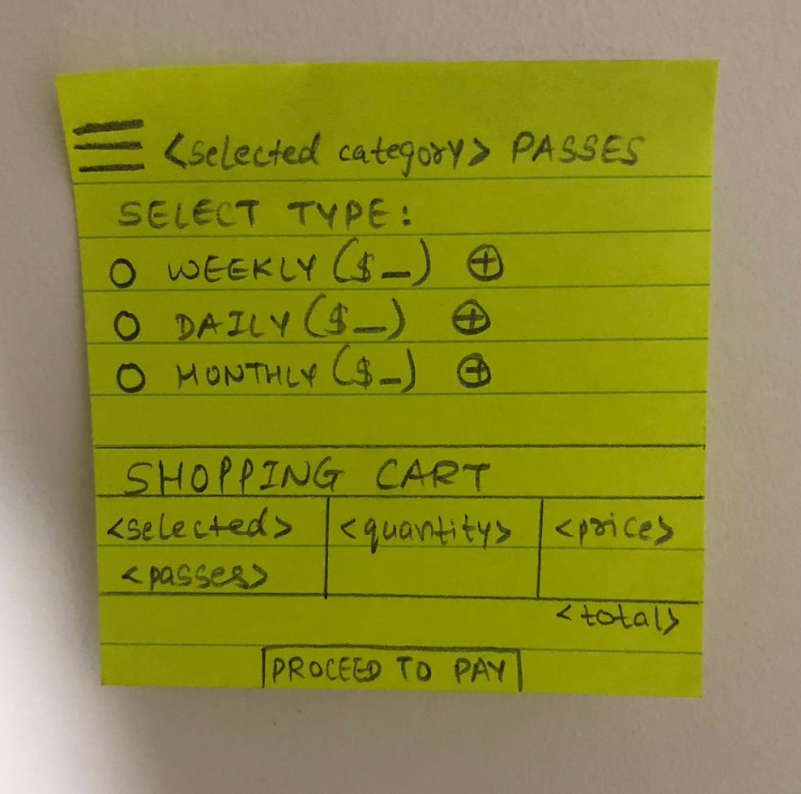 <selected category> PASSES
SELECT TYPE:
WEEKLY ($_)
DAILY ($_)
MONTHLY ($_)
SHOPPING CART
<selected> <quantity> <price>
<passes>
<total>
PROCEED TO PAY